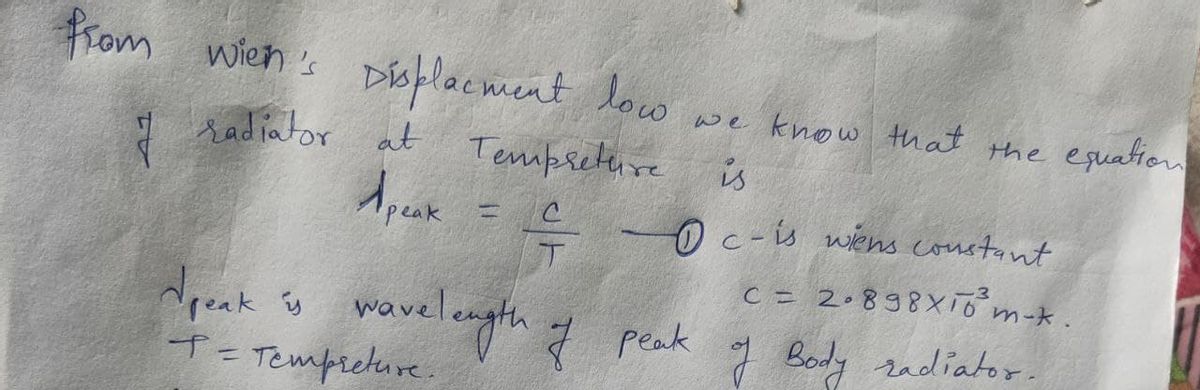 From Wien's Displacment low we know that the equation
of radiator at Tempreture is
λpeak = C/T —① c-is wiens constant
C = 2.898×10⁻³ m-k.
λpeak is wavelength of peak of Body radiator.
T = Tempreture.